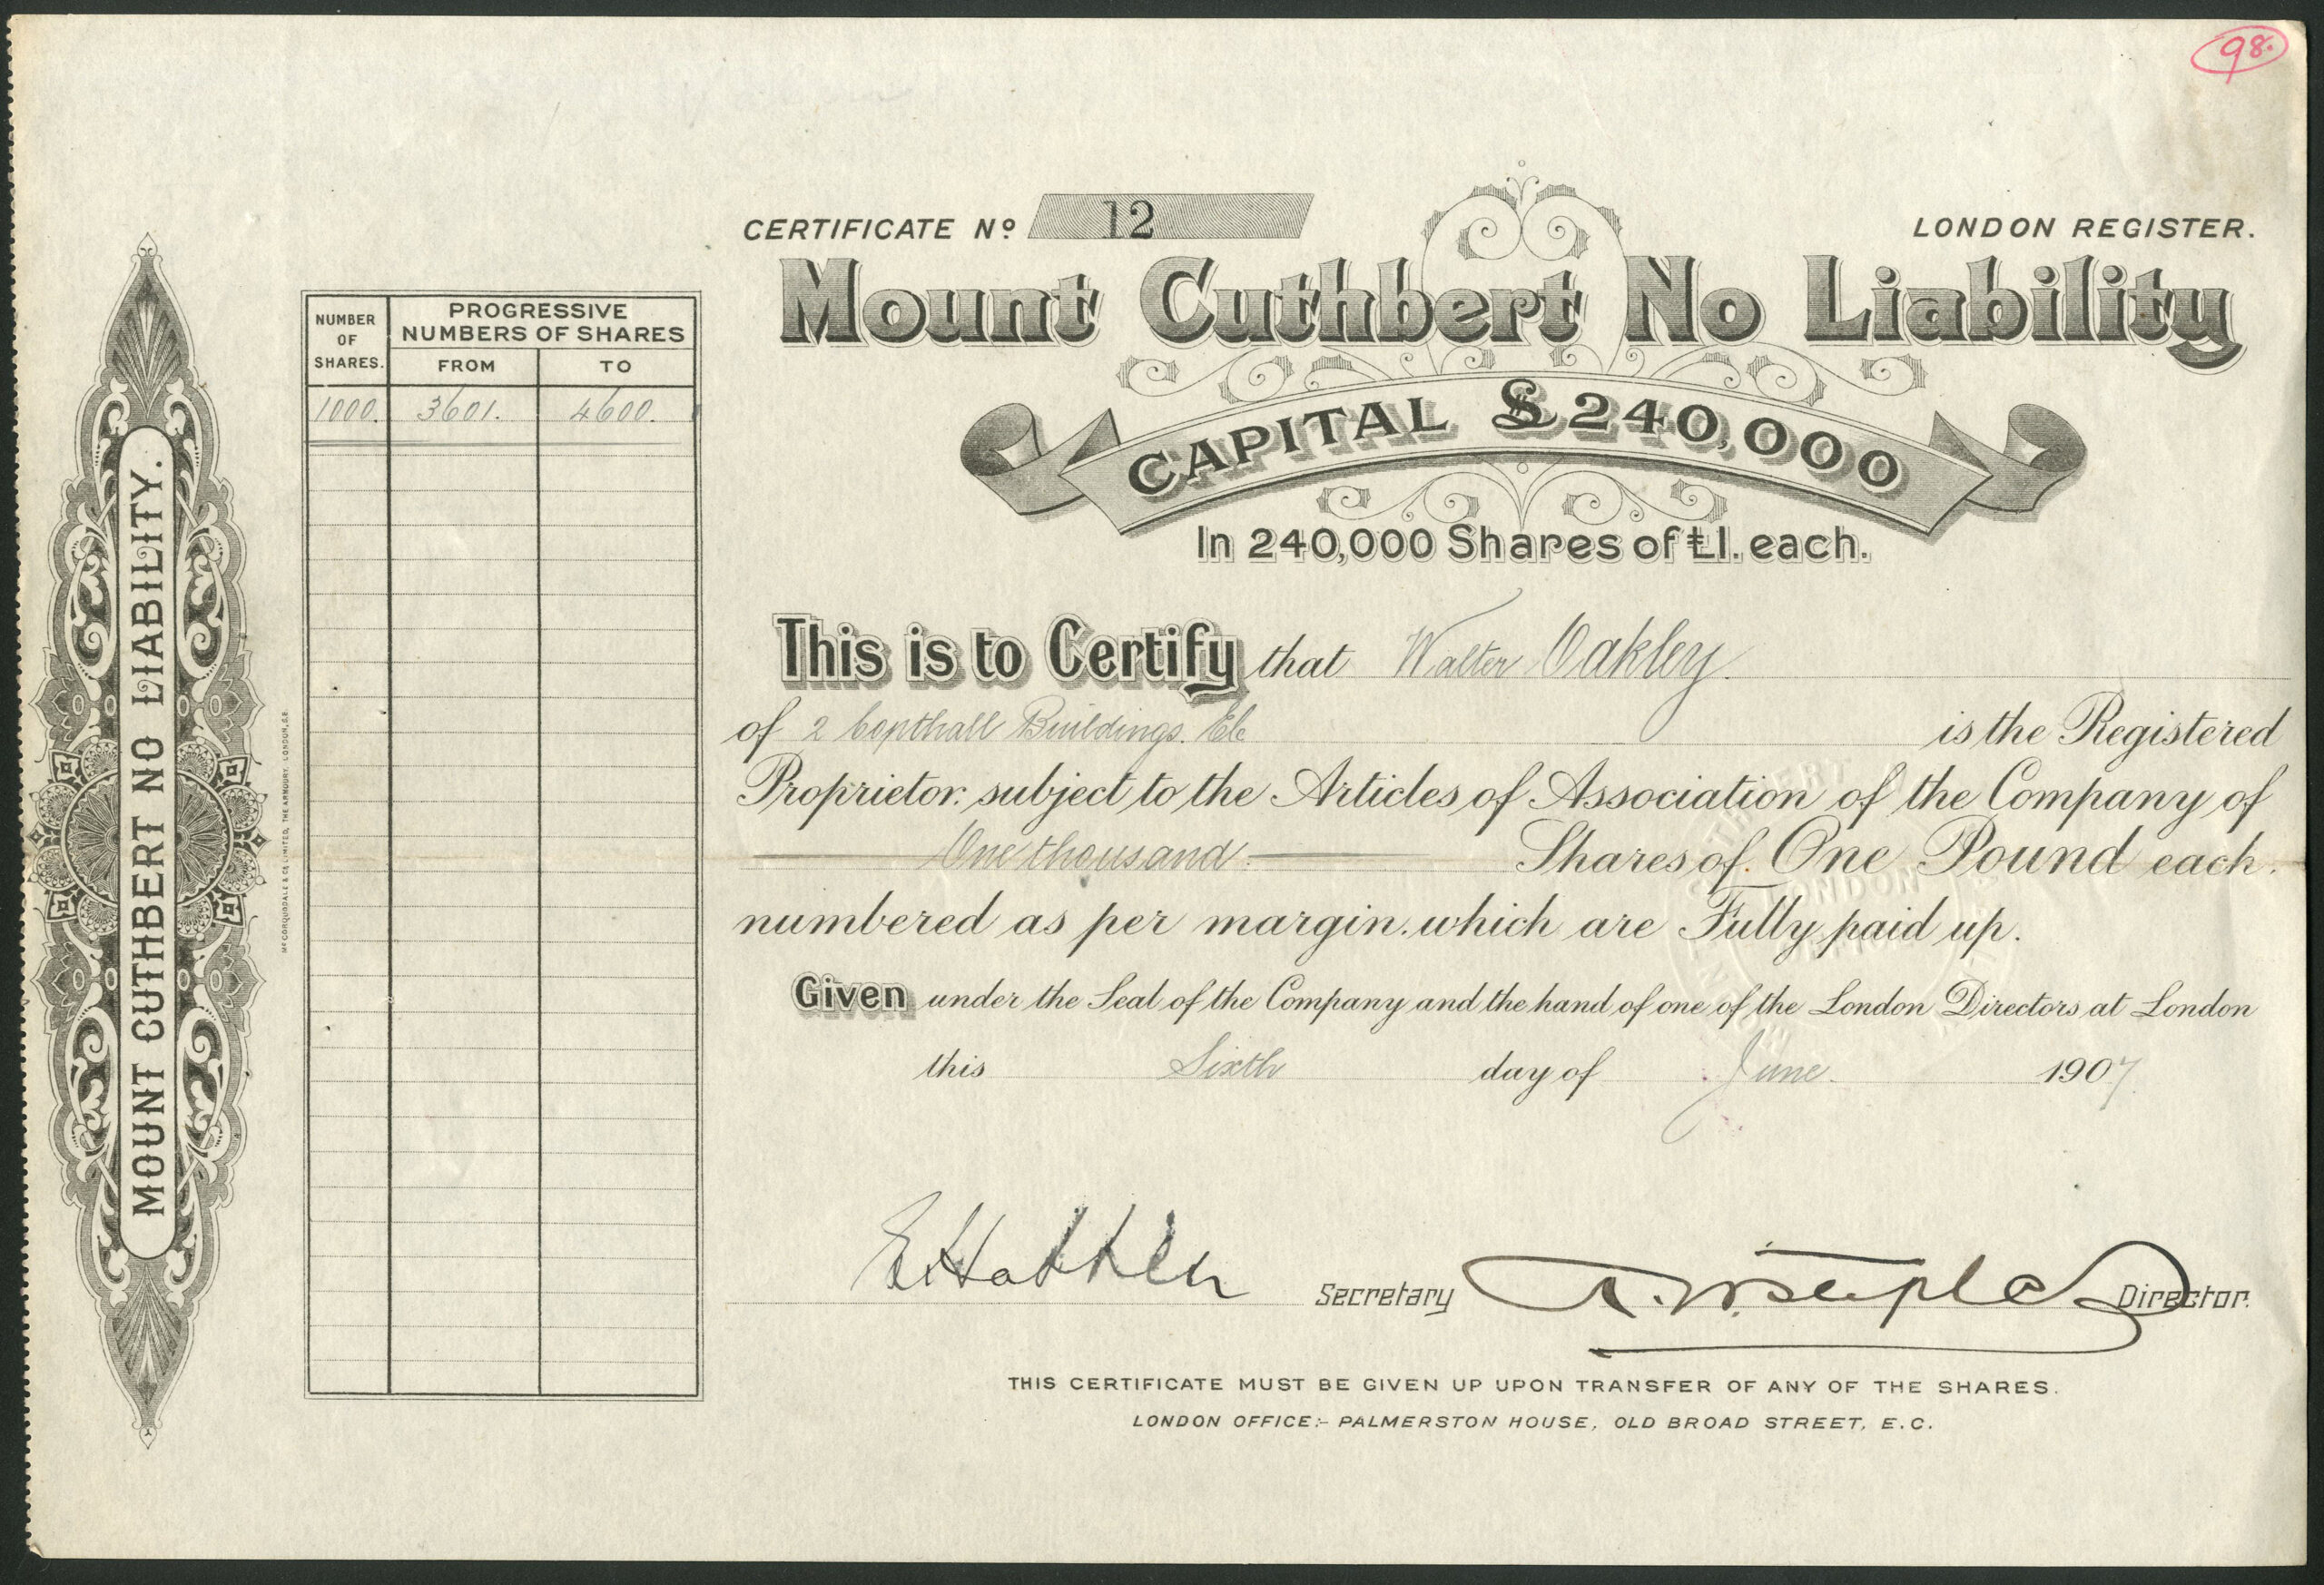 98.
CERTIFICATE Nº 12
LONDON REGISTER.
Mount Cuthbert No Liability
CAPITAL £240,000
In 240,000 Shares of £1. each.
This is to Certify that Walter Oakley.
of 2 Copthall Buildings. EC is the Registered
Proprietor, subject to the Articles of Association of the Company of
One thousand. Shares of One Pound each.
numbered as per margin, which are Fully paid up.
Given under the Seal of the Company and the hand of one of the London Directors at London
this Sixth day of June. 1907
Secretary
Director.
THIS CERTIFICATE MUST BE GIVEN UP UPON TRANSFER OF ANY OF THE SHARES.
LONDON OFFICE:- PALMERSTON HOUSE, OLD BROAD STREET, E.C.
NUMBER OF SHARES.
PROGRESSIVE NUMBERS OF SHARES
FROM
TO
1000. 3601. 4600.
MOUNT CUTHBERT NO LIABILITY.
McCORQUODALE & Co LIMITED, THE ARMOURY, LONDON, S.E.